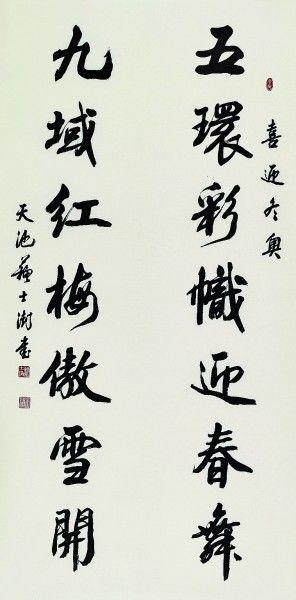 喜迎冬奧
五環彩幟迎春舞
九域红梅傲雪開
天池蘇士澍書